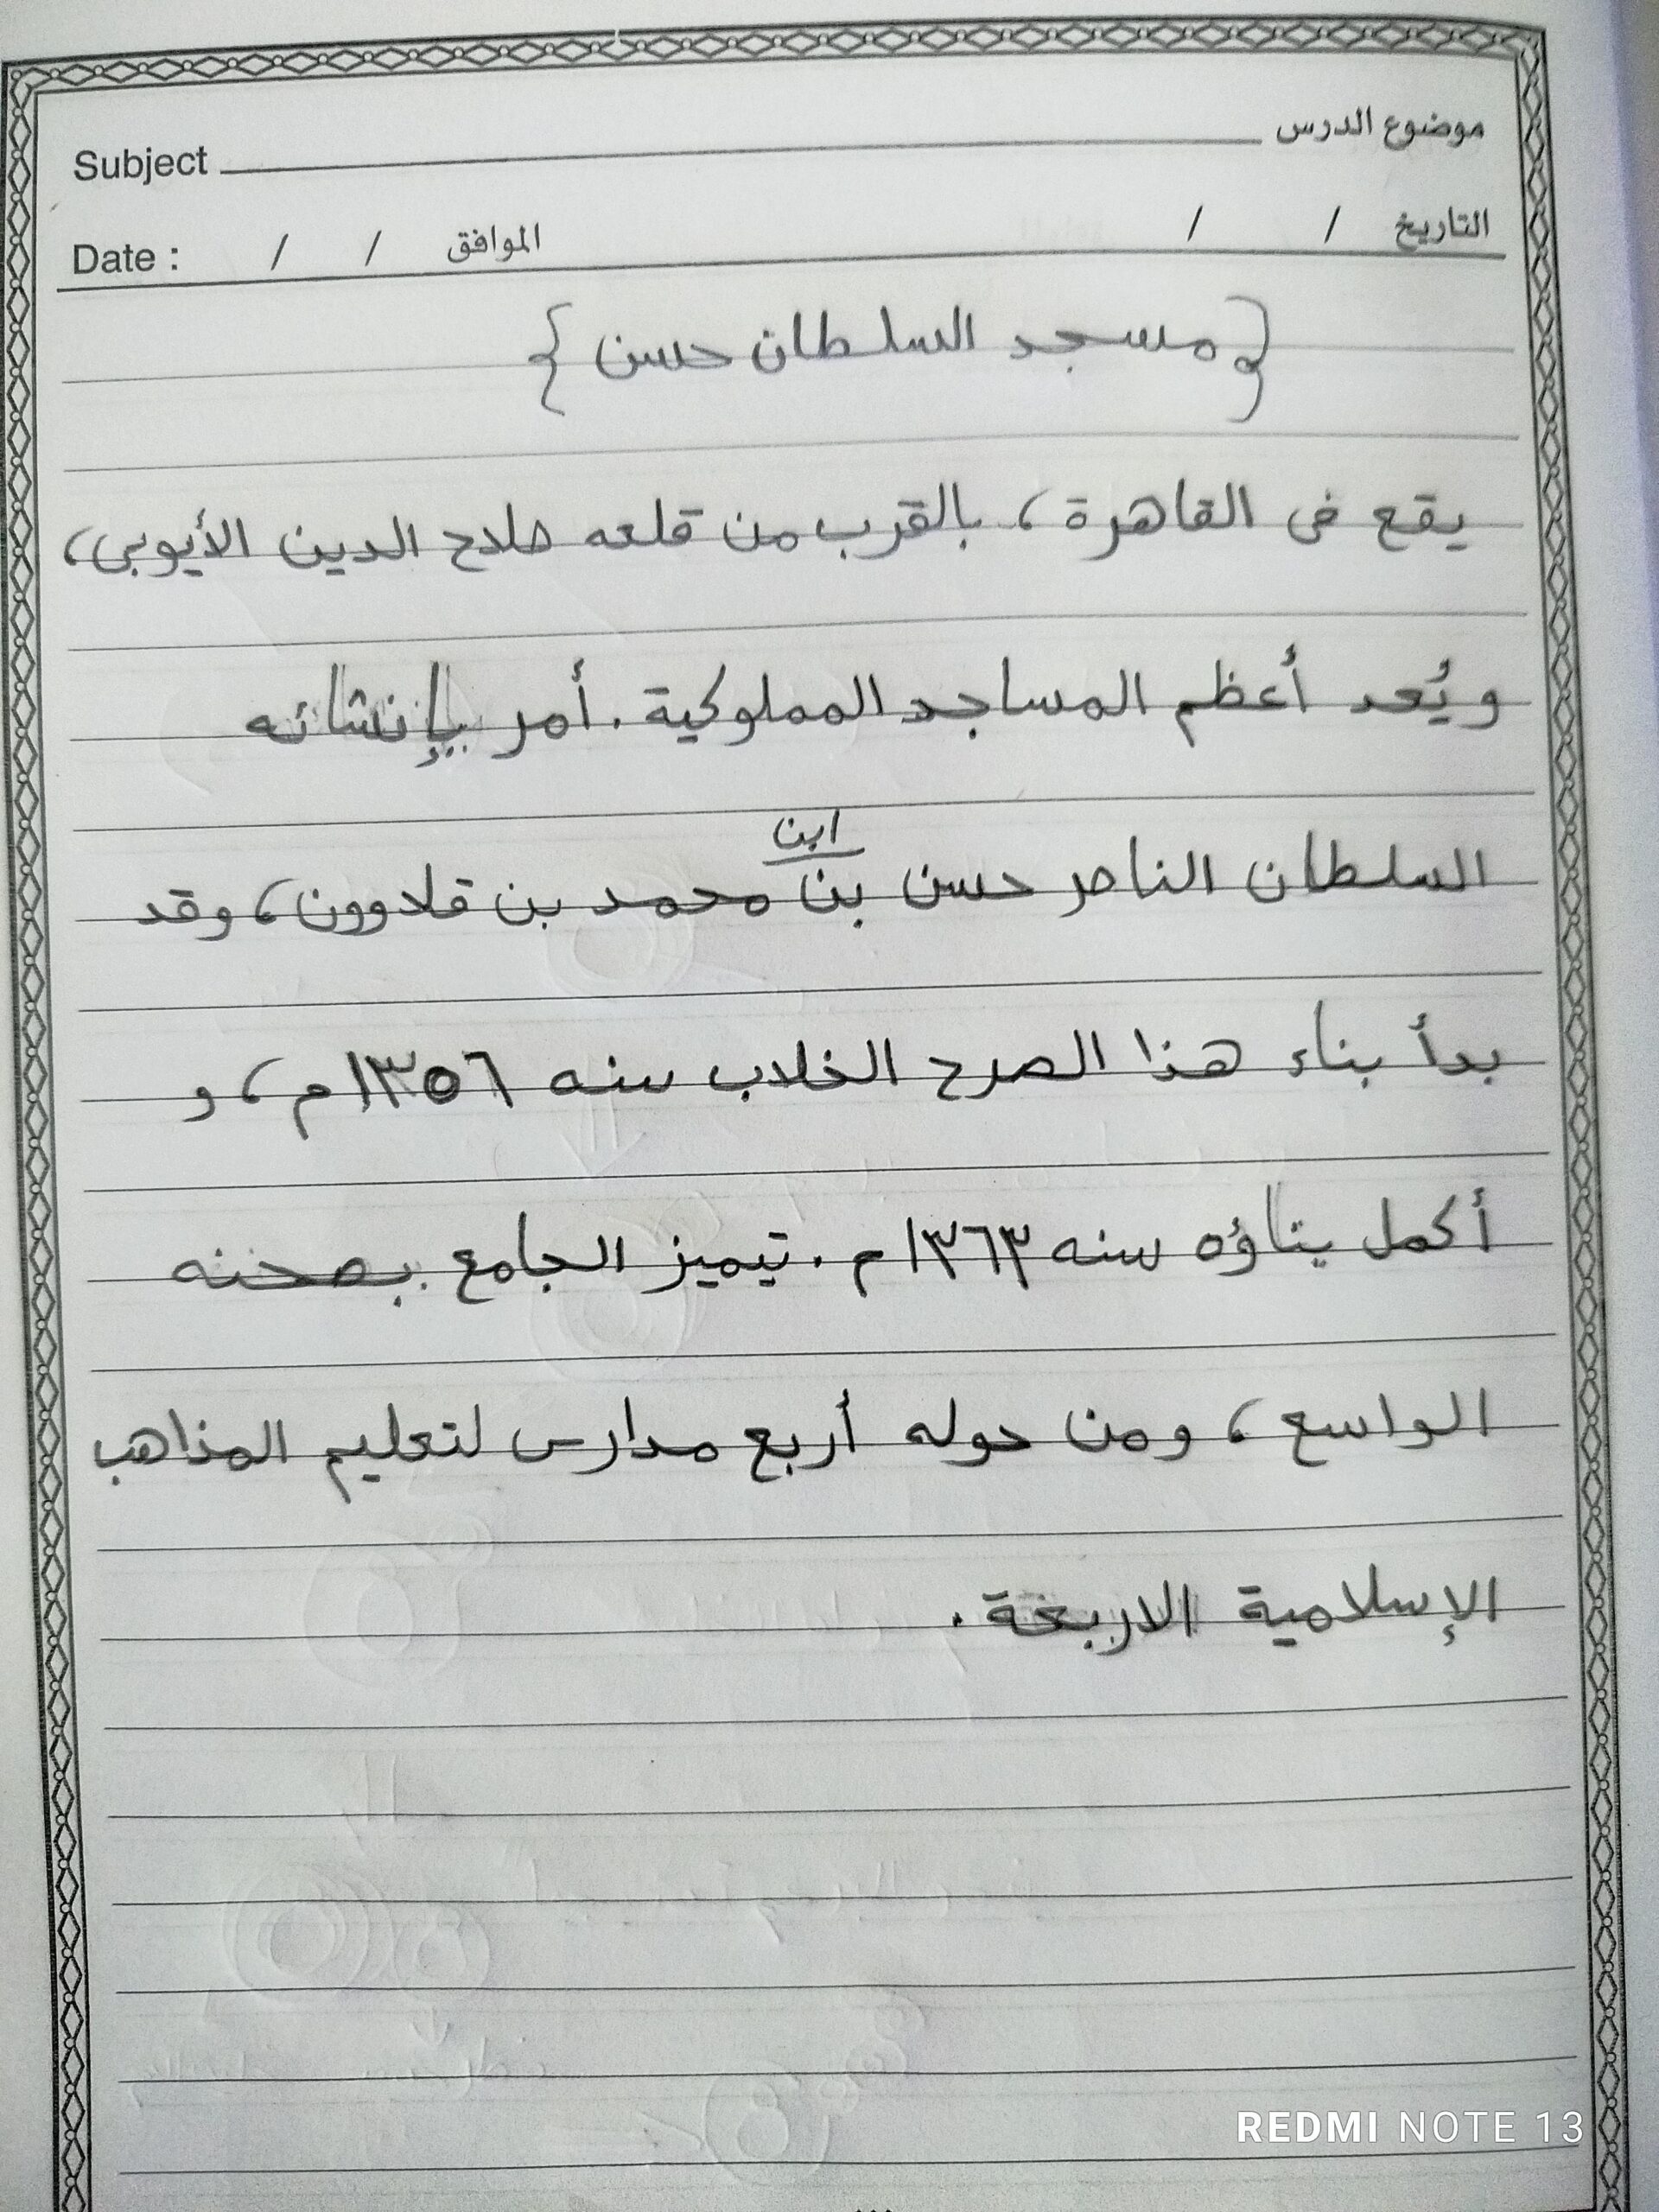 موضوع الدرس Subject
التاريخ / / الموافق / / Date :
{مسجد السلطان حسن}
يقع فى القاهرة، بالقرب من قلعه صلاح الدين الأيوبى،
ويُعد أعظم المساجد المملوكية. أمر بإنشائه
ابن
السلطان الناصر حسن بن محمد بن قلاوون، وقد
بدأ بناء هذا الصرح الخلاب سنه ١٣٥٦م، و
أكمل بناؤه سنه ١٣٦٣م. تيميز الجامع بصحنه
الواسع، ومن حوله أربع مدارس لتعليم المذاهب
الإسلامية الاربعة.
REDMI NOTE 13